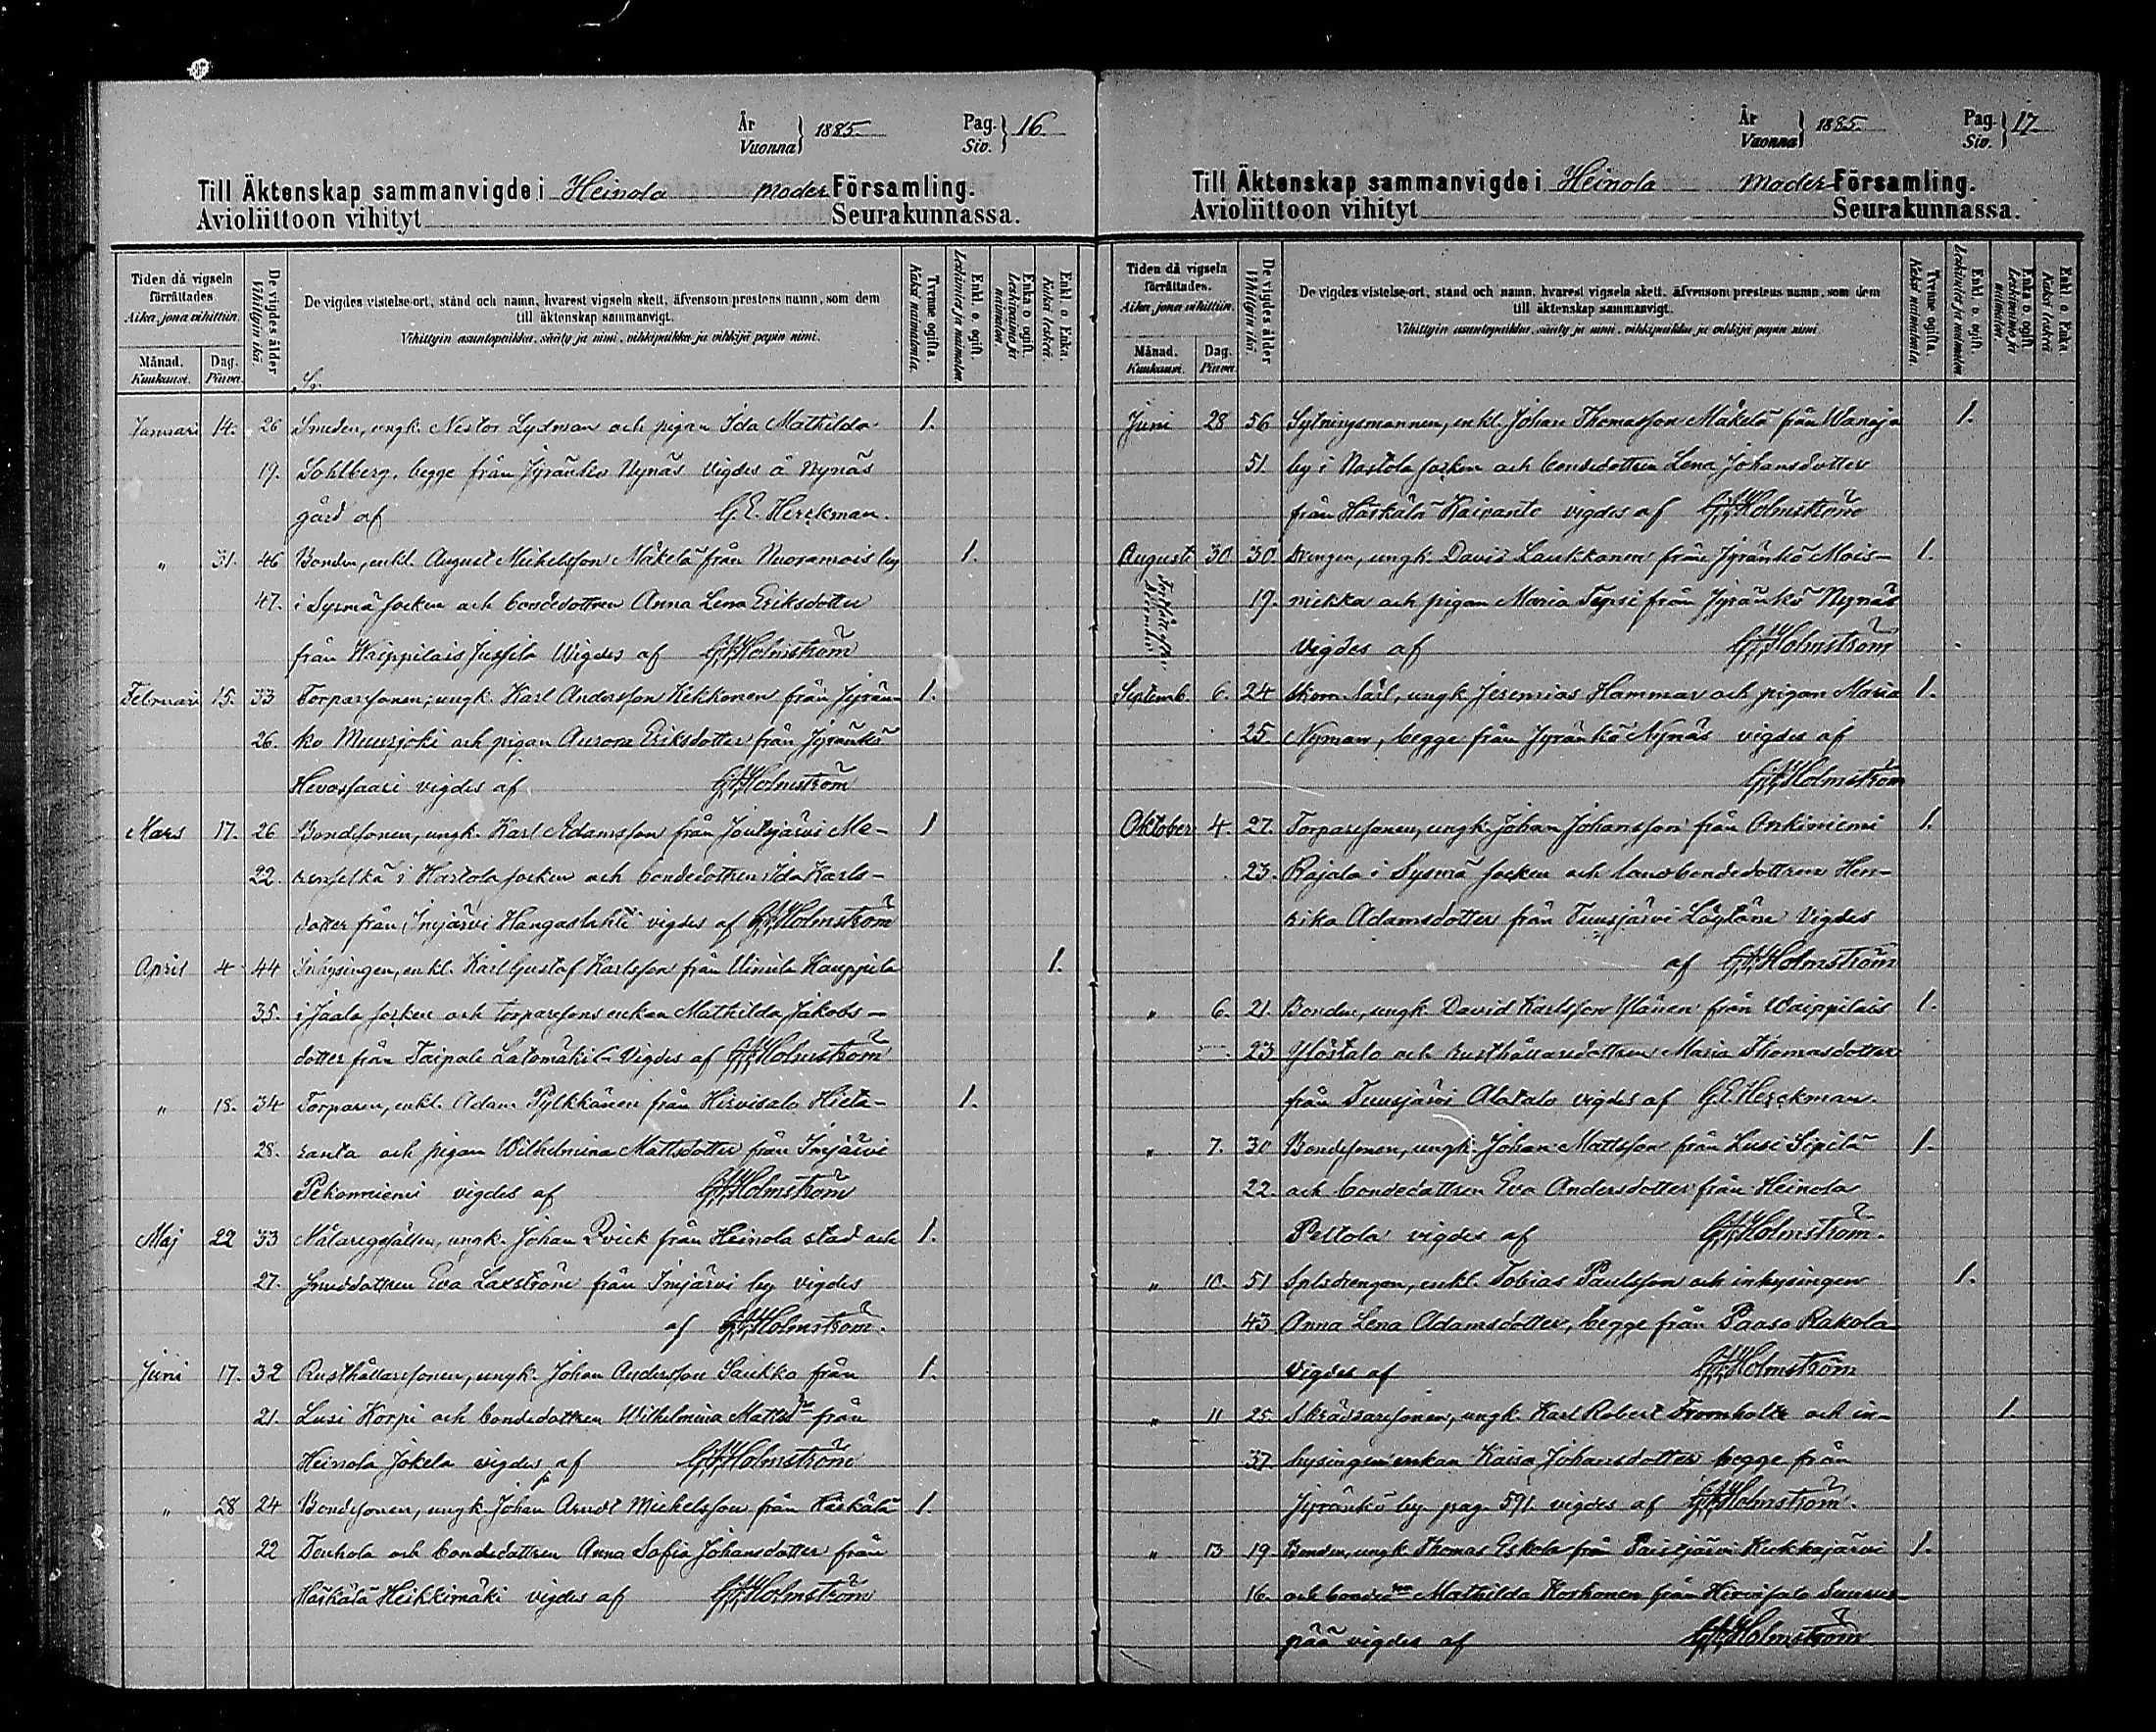 År
Vuonna } 1885. Pag.
Siv. } 16
Till Äktenskap sammanvigde i Heinola Moder Församling.
Avioliittoon vihityt Seurakunnassa.
Tiden då vigseln förrättades
Aika, jona vihittiin.
Månad.
Kuukausi.
Dag.
Päivä.
De vigdes ålder
Vihittyin ikä.
De vigdes vistelse-ort, stånd och namn, hvarest vigseln skett, äfvensom prestens namn, som dem
till äktenskap sammanvigt.
Vihittyin asuntopaikka, sääty ja nimi, vihkipaikka ja vihkijä papin nimi.
Tvenne ogifta.
Kaksi naimatonta.
Enkl. o. ogift.
Leskimies ja naimaton.
Enka o. ogift.
Leskivaimo ja naimaton.
Enkl. o. Enka.
Kaksi leskeä.
Januari 14. 26 Smeden, ungk. Nestor Lydman och pigan Ida Mathilda 1.
19. Sohlberg, begge från Jyränkö Nynäs vigdes å Nynäs
gård af G. E. Herckman.
" 31. 46 Bonden, enkl. August Michelsson Mäkelä från Nuoramois by 1.
47. i Sysmä socken och bondedottren Anna Lena Eriksdotter
från Waippilais Jussila Vigdes af Holmström
Februari 15. 33 Torparsonen, ungk. Karl Andersson Kekkonen från Jyrän- 1.
26. kö Muurjoki och pigan Aurora Eriksdotter från Jyränkö
Hevossaari vigdes af Holmström
Mars 17. 26 Bondsonen, ungk. Karl Adamsson från Joutsjärvi Me- 1
22. renselkä i Hartola socken och bondedottren Ida Karls-
dotter från Imjärvi Hangaslahti vigdes af Holmström
April 4 44 Inhysingen, enkl. Karl Gustaf Karlsson från Uimila Kauppila 1.
35. i Jaala socken och torparesons enkan Mathilda Jakobs-
dotter från Taipale Latomäki Vigdes af Holmström
" 18. 34 Torparen, enkl. Adam Pylkkänen från Hirvisalo Hieta- 1.
28. ranta och pigan Wilhelmina Mattsdotter från Imjärvi
Pekonniemi vigdes af Holmström
Maj 22 33 Målaregesällen, ungk. Johan Qvick från Heinola stad och 1.
27. smeddottren Eva Laxström från Imjärvi by vigdes
af Holmström.
Juni 17. 32 Rusthållarsonen, ungk. Johan Andersson Saukko från 1.
21. Lusi Korpi och bondedottren Wilhelmina Mattsdr från
Heinola Jokela vigdes af Holmström
" 28 24 Bondsonen, ungk. Johan Arndt Michelsson från Härkälä 1.
22 Touhola och bondedottren Anna Sofia Johansdotter från
Härkälä Heikkimäki vigdes af Holmström
År
Vuonna } 1885. Pag.
Siv. } 17.
Till Äktenskap sammanvigde i Heinola Moder Församling.
Avioliittoon vihityt Seurakunnassa.
Tiden då vigseln förrättades.
Aika, jona vihittiin.
Månad.
Kuukausi.
Dag.
Päivä.
De vigdes ålder
Vihittyin ikä.
De vigdes vistelse-ort, stånd och namn, hvarest vigseln skett, äfvensom prestens namn, som dem
till äktenskap sammanvigt.
Vihittyin asuntopaikka, sääty ja nimi, vihkipaikka ja vihkijä papin nimi
Tvenne ogifta.
Kaksi naimatonta.
Enkl. o. ogift.
Leskimies ja naimaton
Enka o. ogift.
Leskivaimo ja naimaton.
Enkl. o. Enka
Kaksi leskeä
Juni 28 56 Sytningsmannen, enkl. Johan Thomasson Mäkelä från Wanaja 1.
51. by i Nastola socken och bondedottren Lena Johansdotter
från Härkälä Kaivanto vigdes af Holmström
August 30 30. Drengen, ungk. David Laukkanen från Jyränkö Mois- 1.
19. niekka och pigan Maria Tepsi från Jyränkö Nynäs
vigdes af Holmström
Septemb. 6. 24 ungk. Jeremias Hammar och pigan Maria 1.
25. Nyman, begge från Jyränkö Nynäs vigdes af
Holmström
Oktober 4. 27. Torparesonen, ungk. Johan Johansson från Onkiniemi 1.
23. Rajala i Sysmä socken och landbondedottren Hen-
rika Adamsdotter från Tuusjärvi Vigdes
af Holmström
" 6. 21. Bonden, ungk. David Karlsson Ylänen från Waippilais 1.
23 Ylöstalo och rusthållaredottren Maria Thomasdotter
från Tuusjärvi Alatalo vigdes af G. E. Herckman.
" 7. 30 Bondsonen, ungk. Johan Mattsson från Lusi Sipilä 1.
22. och bondedottren Eva Andersdotter från Heinola
Peltola vigdes af Holmström.
" 10. 51 enkl. Tobias Paulsson och inhysingen 1.
43 Anna Lena Adamsdotter, begge från Paaso Rakola
vigdes af Holmström
" 11 25 Skräddaresonen, ungk. Karl Robert Fromholtz och in- 1.
37. hysingsenkan Kaisa Johansdotter begge från
Jyränkö by pag. 591. vigdes af Holmström.
" 13 19 Bonden, ungk. Thomas Eskola från Paistjärvi Kuckkajärvi 1.
16. och Mathilda Korhonen från Hirvisalo Suuren-
pää vigdes af Holmström